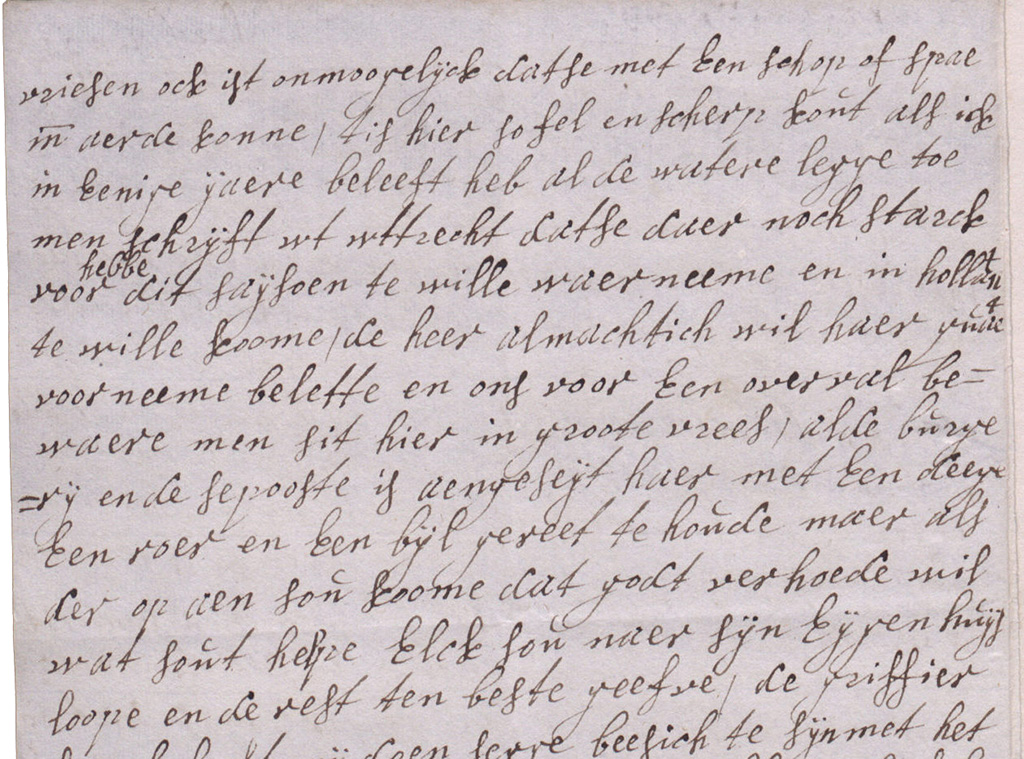 vriesen ock ist onmoogelijck datse met een schop of spae
in aerde konne / tis hier so fel en scherp kout als ick
in eenige yaere beleeft heb al de watere legge toe
men schrijft wt wttrecht datse daer noch starck
hebbe
voor dit saijsoen te wille waerneeme en in hollant
te wille koome / de heer almachtich wil haer quat
voorneeme belette en ons voor een overval be=
waere men sit hier in groote vrees / al de burge
=rij en de sepooste is aengeseijt haer met een deege
een roer en een bijl gereet te houde maer als
der op aen sou koome dat godt verhoede wil
wat sout helpe elck sou naer sijn eijgen huijs
loope en de rest ten beste geefve / de griffier
doen segge beesich te sijn met het